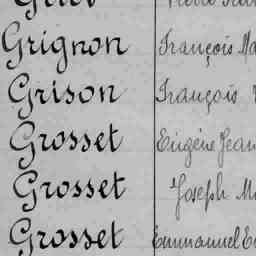 Grignon François
Grison François
Grosset Eugène Jean
Grosset Joseph
Grosset Emmanuel